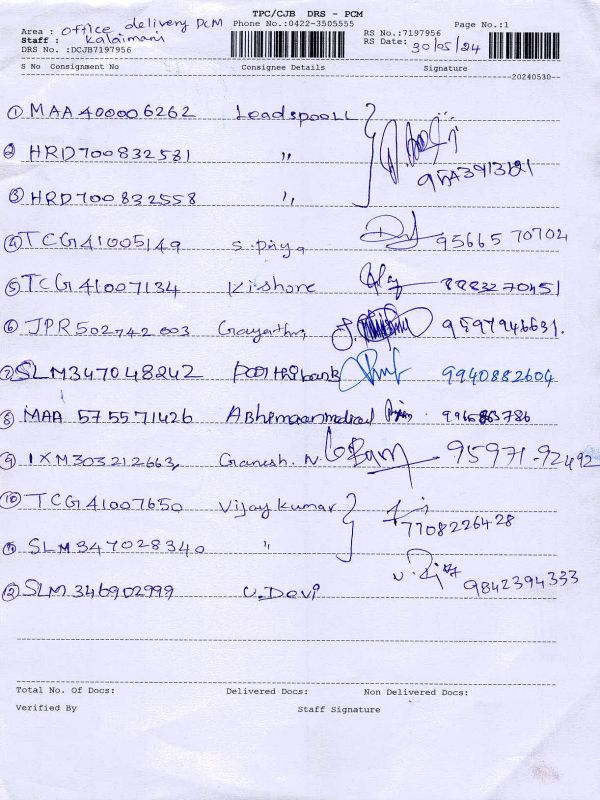 TPC/CJB DRS - PCM
Area : office delivery PCM Phone No.:0422-3505555 Page No.:1
Staff : Kalaimani RS No.:7197956
DRS No. :DCJB7197956 RS Date: 30/05/24
S No Consignment No Consignee Details Signature
20240530
1 MAA 400006262 Leadspooll
2 HRD700832581 "
3 HRD700832558 "
4 TCG41005149 S. Priya 95665 70702
5 TCG41007134 Kishore 8883270451
6 JPR502742003 Gayathri 9597946631.
7 SLM347048242 bank 9940882604
8 MAA 575571426 Abhimaanmedical
9 IXM303212663, Ganesh. N. 95971-92492
10 TCG41007650 Vijay Kumar 7708226428
SLM347028340 "
SLM346902999 U. Devi 9842394333
Total No. Of Docs: Delivered Docs: Non Delivered Docs:
Verified By Staff Signature